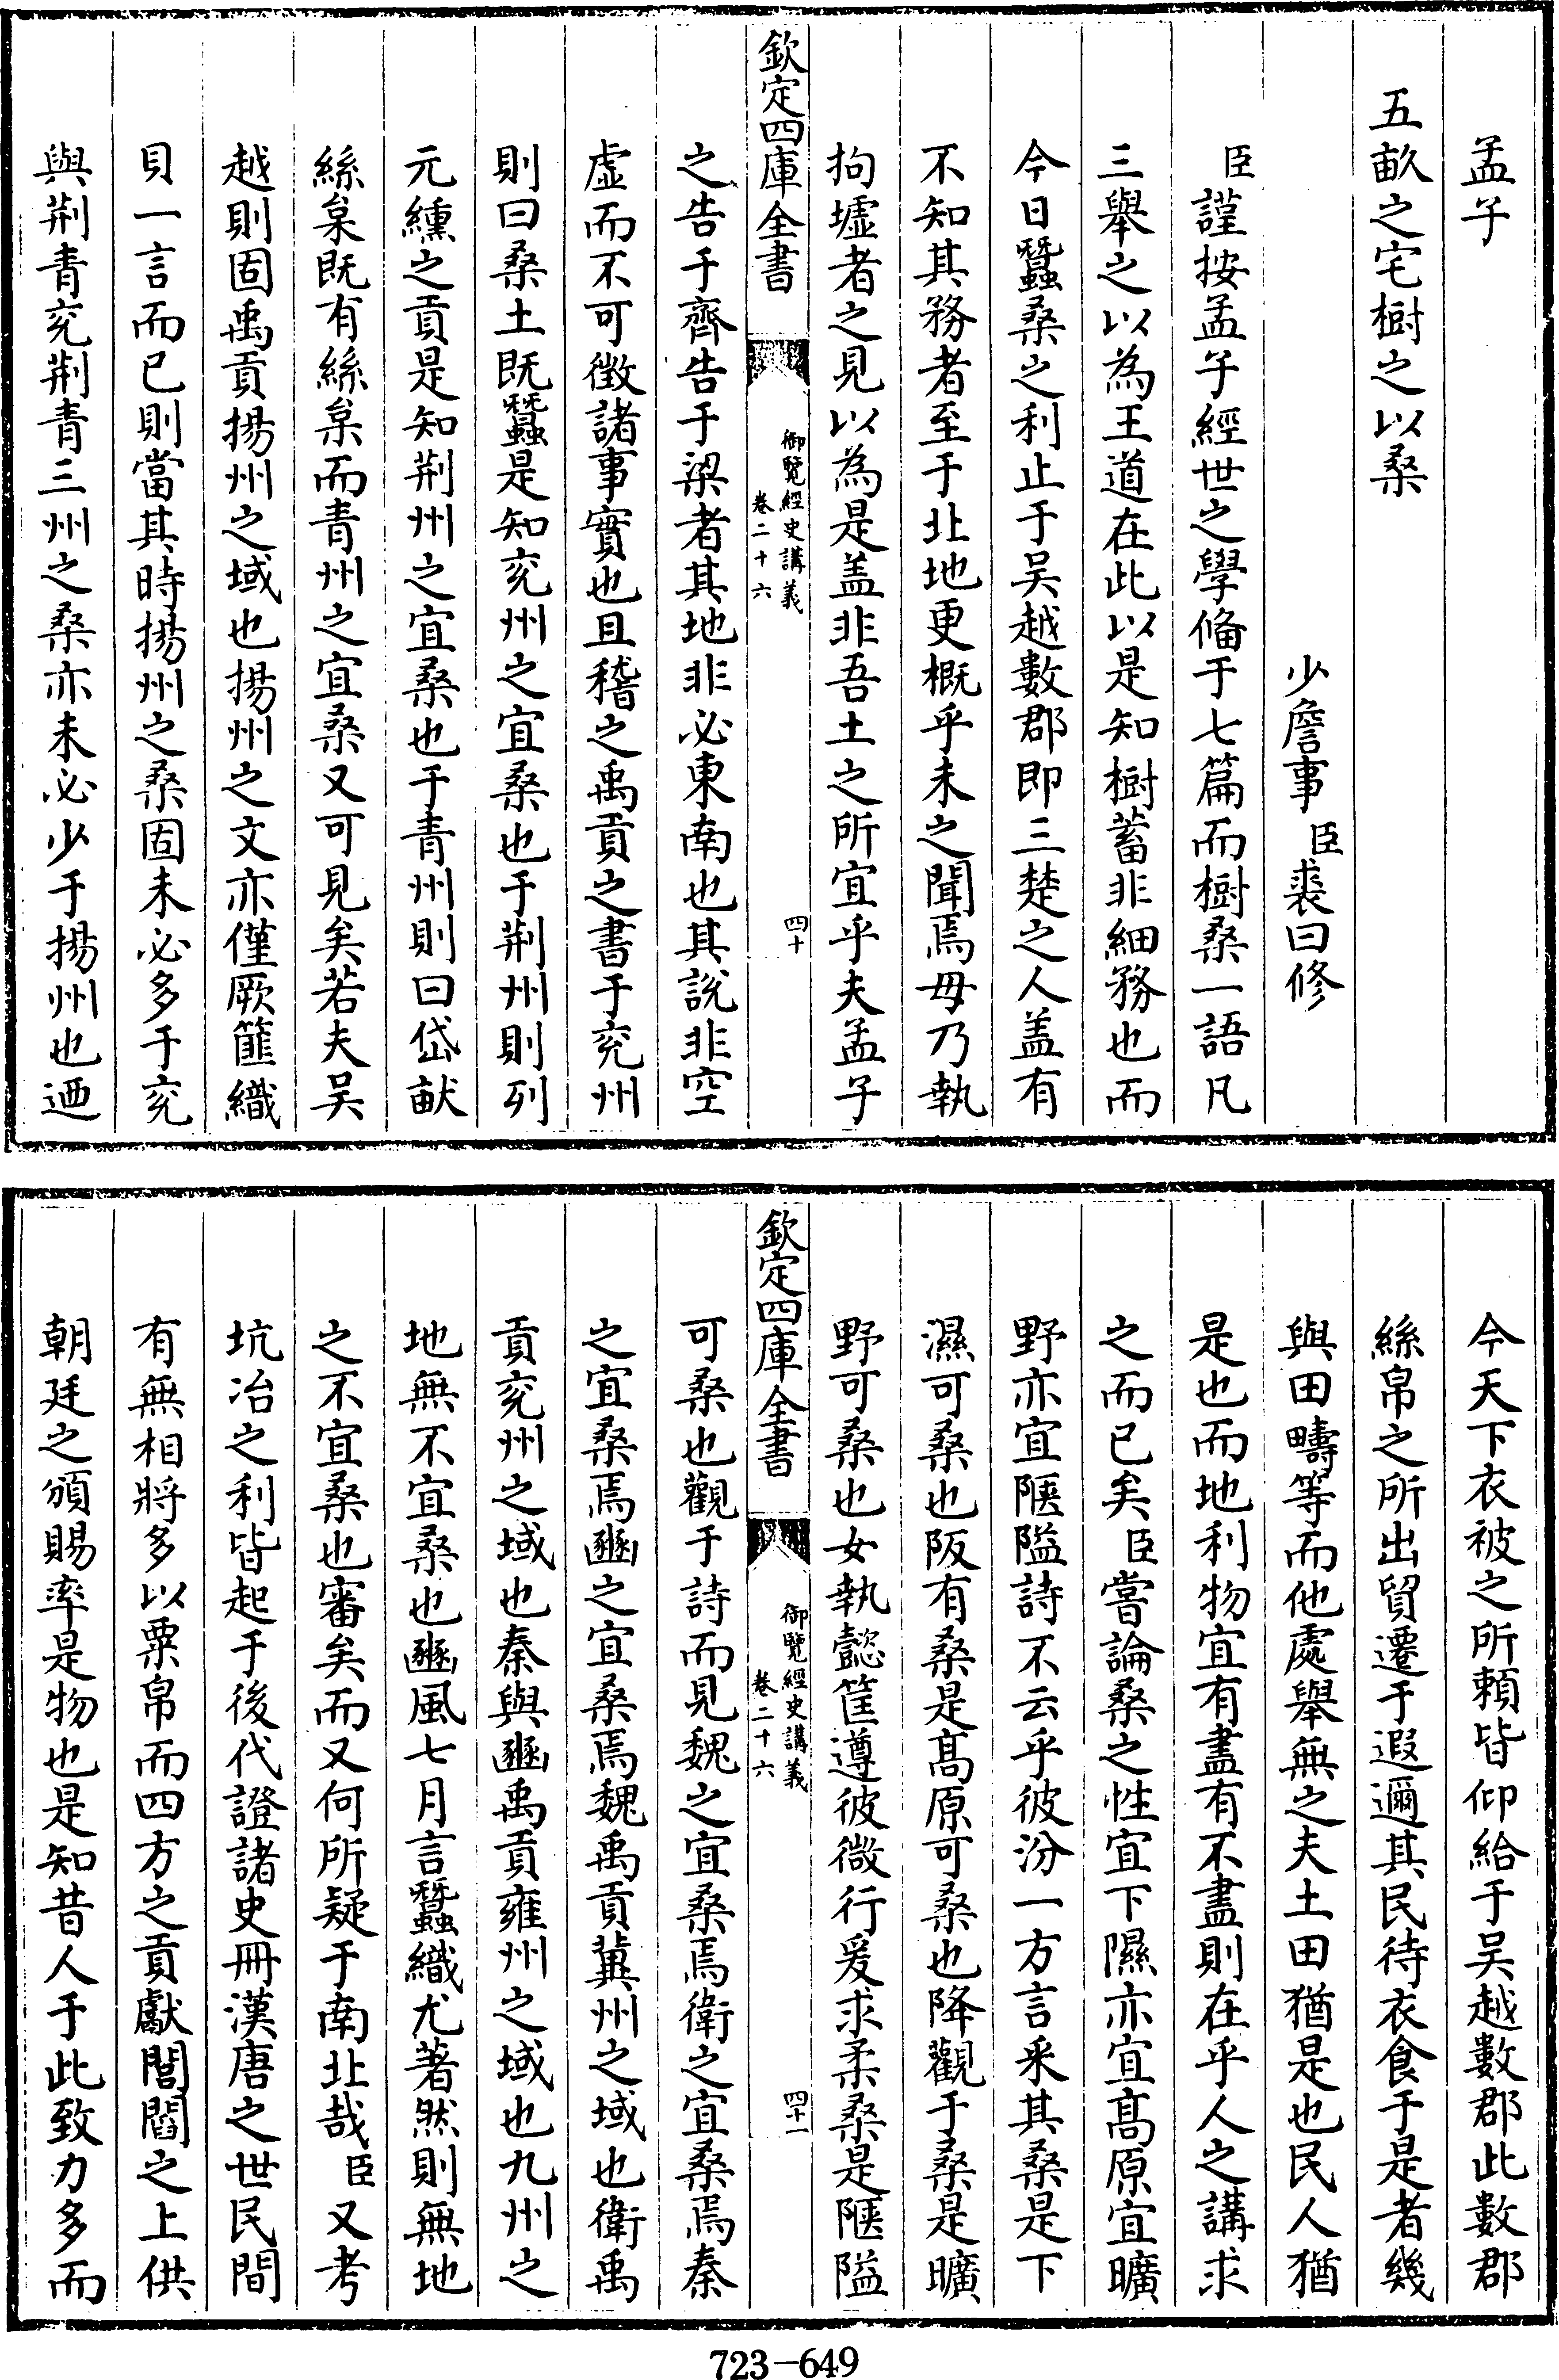 孟子
五畝之宅樹之以桑
少詹事臣裘曰修
臣謹按孟子經世之學備于七篇而樹桑一語凡
三舉之以為王道在此以是知樹蓄非細務也而
今日蠶桑之利止于吳越數郡即三楚之人盖有
不知其務者至于北地更概乎未之聞焉毋乃執
拘墟者之見以為是盖非吾土之所宜乎夫孟子
欽定四庫全書
御覽經史講義
卷二十六
四十
之告于齊告于梁者其地非必東南也其說非空
虛而不可徵諸事實也且稽之禹貢之書于兖州
則曰桑土既蠶是知兖州之宜桑也于荆州則列
元纁之貢是知荆州之宜桑也于青州則曰岱畎
絲枲既有絲枲而青州之宜桑又可見矣若夫吳
越則固禹貢揚州之域也揚州之文亦僅厥篚織
貝一言而已則當其時揚州之桑固未必多于兖
與荆青兖荆青三州之桑亦未必少于揚州也迺
今天下衣被之所頼皆仰給于吳越數郡此數郡
絲帛之所出貿遷于遐邇其民待衣食于是者幾
與田疇等而他處舉無之夫土田猶是也民人猶
是也而地利物宜有盡有不盡則在乎人之講求
之而已矣臣嘗論桑之性宜下隰亦宜高原宜曠
野亦宜陿隘詩不云乎彼汾一方言采其桑是下
濕可桑也阪有桑是高原可桑也降觀于桑是曠
野可桑也女執懿筐遵彼微行爰求柔桑是陿隘
欽定四庫全書
御覽經史講義
卷二十六
四十一
可桑也觀于詩而見魏之宜桑焉衛之宜桑焉秦
之宜桑焉豳之宜桑焉魏禹貢冀州之域也衛禹
貢兖州之域也秦與豳禹貢雍州之域也九州之
地無不宜桑也豳風七月言蠶織尤著然則無地
之不宜桑也審矣而又何所疑于南北哉臣又考
坑冶之利皆起于後代證諸史冊漢唐之世民間
有無相將多以粟帛而四方之貢獻閭閻之上供
朝廷之頒賜率是物也是知昔人于此致力多而
723-649